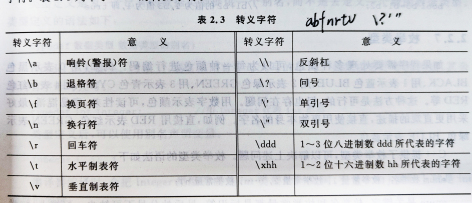 表 2.3 转义字符
abfnrtv \?'"
转义字符 意 义 转义字符 意 义
\a 响铃(警报)符 \\ 反斜杠
\b 退格符 \? 问号
\f 换页符 \' 单引号
\n 换行符 \" 双引号
\r 回车符 \ddd 1~3 位八进制数 ddd 所代表的字符
\t 水平制表符 \xhh 1~2 位十六进制数 hh 所代表的字符
\v 垂直制表符